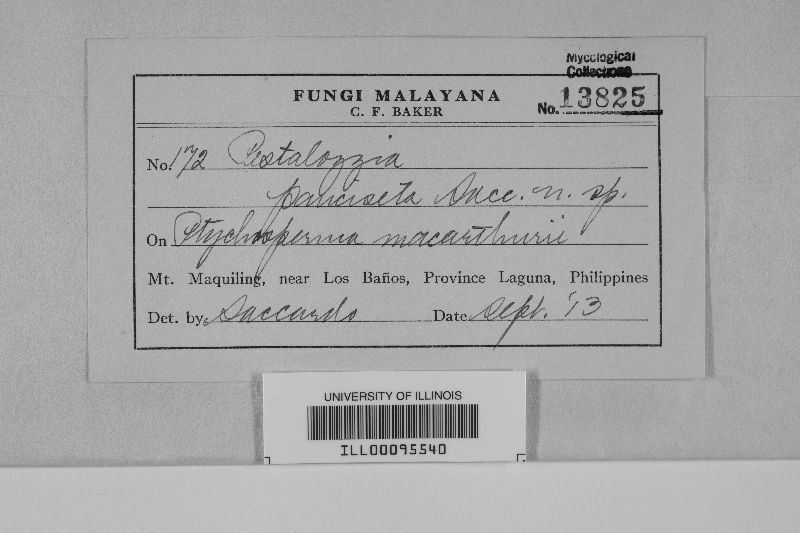 Mycological
Collections
No. 13825
FUNGI MALAYANA
C. F. BAKER
No. 172 Pestalozzia
pauciseta Sacc. n. sp.
On Ptychosperma macarthurii
Mt. Maquiling, near Los Baños, Province Laguna, Philippines
Det. by Saccardo Date Sept. '13
UNIVERSITY OF ILLINOIS
ILL00095540